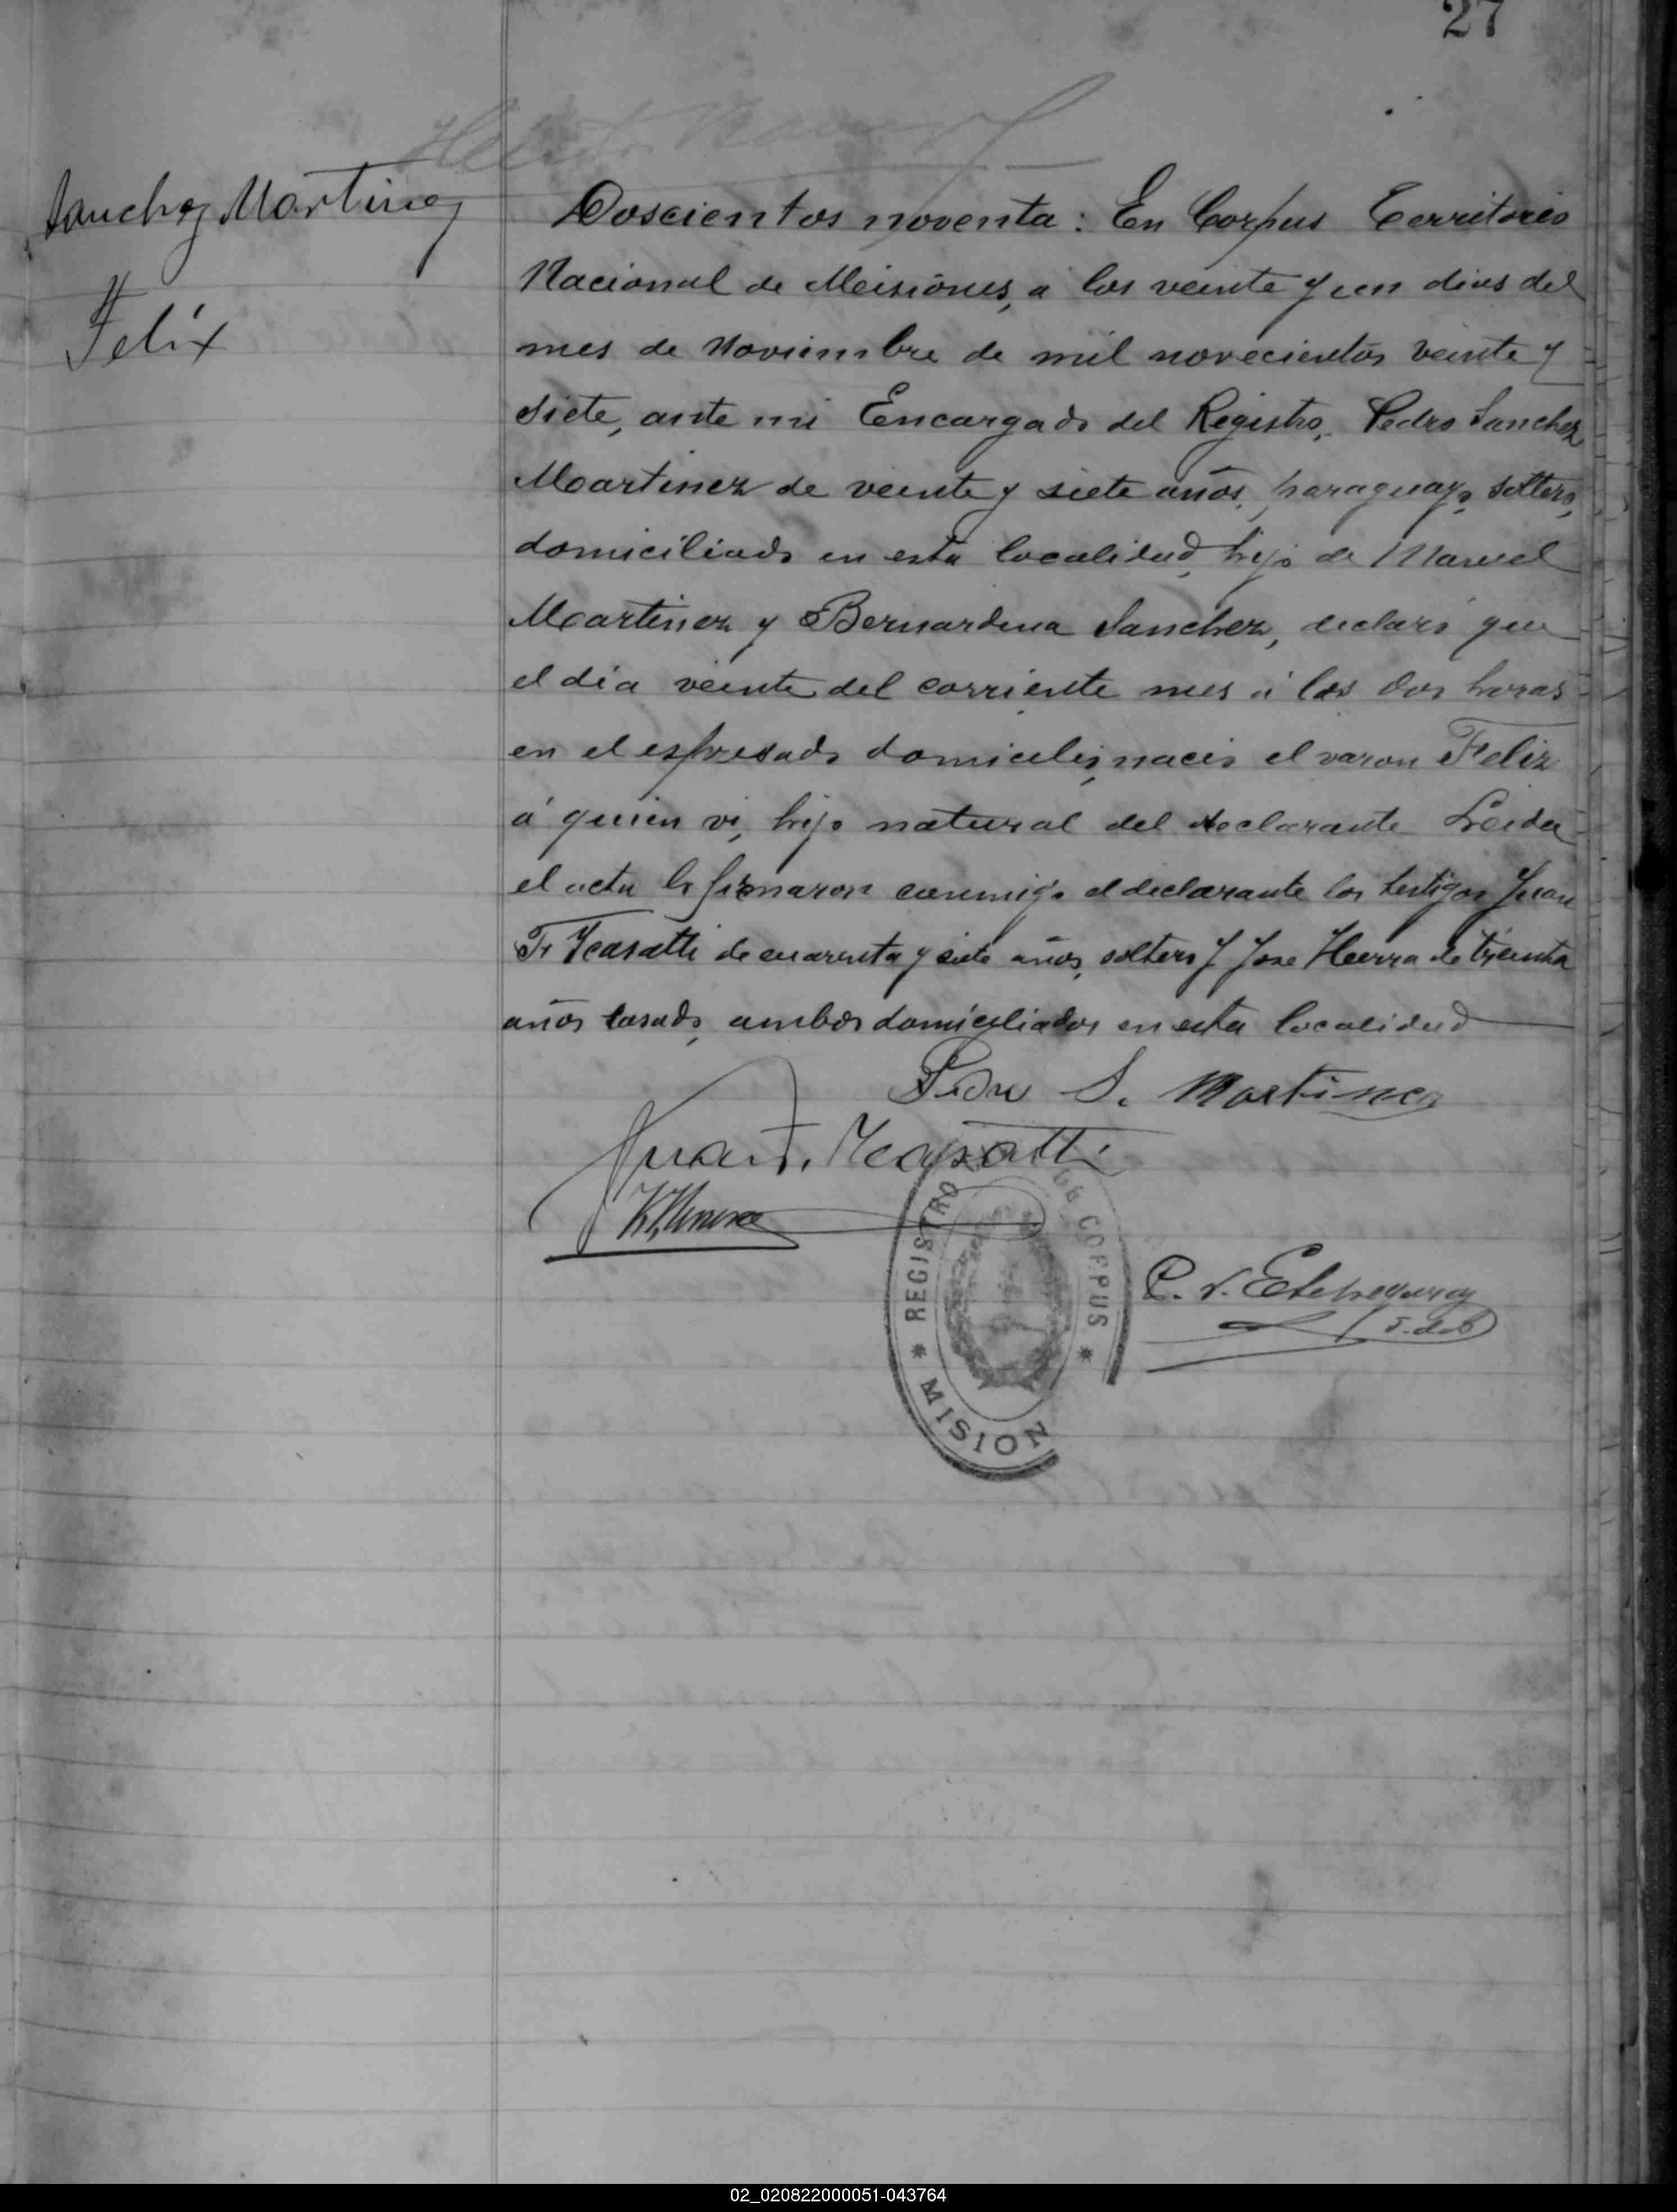 27
Sanchez Martinez
Felíx
Doscientos noventa: En Corpus Territorio
Nacional de Misiones, a los veinte y un dias del
mes de Noviembre de mil novecientos veinte y
siete, ante mi Encargado del Registro, Pedro Sanchez
Martinez de veinte y siete años, paraguayo, soltero,
domiciliado en esta localidad, hijo de Manuel
Martinez y Bernardina Sanchez, declaró que
el dia veinte del corriente mes á las dos horas
en el espresado domicilio, nacio el varon Feliz
á quien vi, hijo natural del declarante Leida
el acta la firmaron conmigo el declarante los testigos Juan
F. de cuarenta y siete años, soltero y Jose de treinta
años casado, ambos domiciliados en esta localidad
Pedro S. Martinez
Juan F.
REGISTRO DE CORPUS
* MISION *
P. V. Etchegaray
02_020822000051-043764